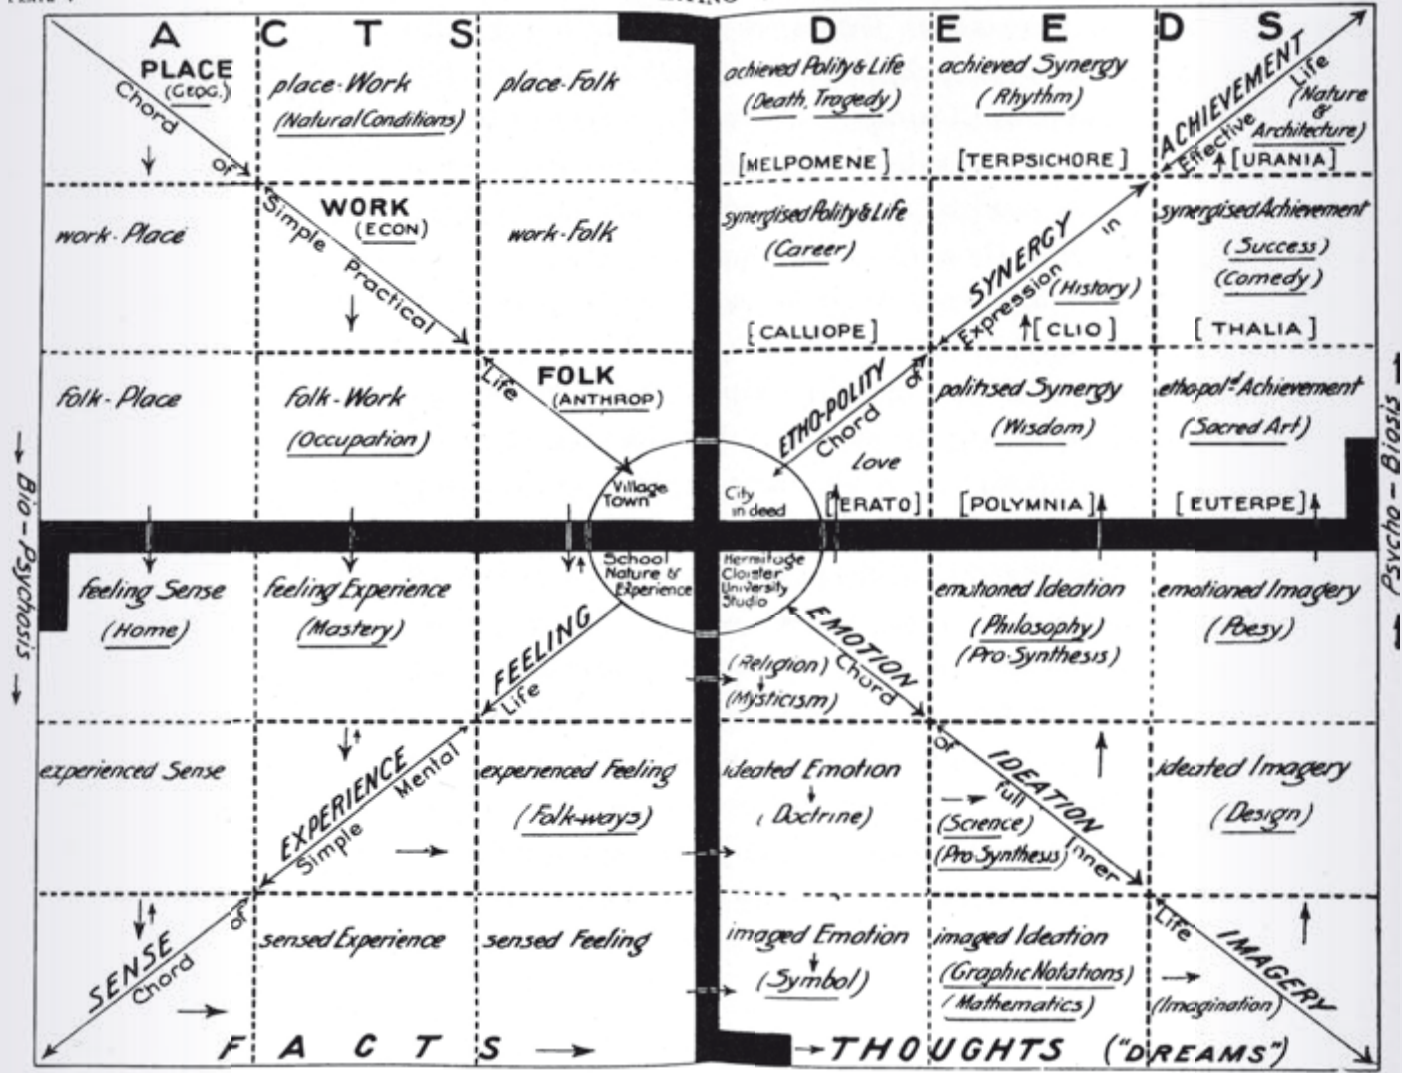 A C T S
D E E D S
PLACE
(GEOG.)
Chord of
place-Work
(Natural Conditions)
place-Folk
achieved Polity & Life
(Death, Tragedy)
[MELPOMENE]
achieved Synergy
(Rhythm)
[TERPSICHORE]
ACHIEVEMENT
Effective Life
(Nature
&
Architecture)
[URANIA]
work-Place
Simple Practical
WORK
(ECON)
work-Folk
synergised Polity & Life
(Career)
[CALLIOPE]
SYNERGY
Expression in
(History)
[CLIO]
synergised Achievement
(Success)
(Comedy)
[THALIA]
folk-Place
folk-Work
(Occupation)
Life
FOLK
(ANTHROP)
Village
Town
ETHO-POLITY
Chord of
Love
[ERATO]
City
in deed
politised Synergy
(Wisdom)
[POLYMNIA]
etho-pold Achievement
(Sacred Art)
[EUTERPE]
Bio-Psychosis
Psycho-Biosis
feeling Sense
(Home)
feeling Experience
(Mastery)
FEELING
Life
School
Nature &
Experience
Hermitage
Cloister
University
Studio
EMOTION
Chord
(Religion)
(Mysticism)
emotioned Ideation
(Philosophy)
(Pro-Synthesis)
emotioned Imagery
(Poesy)
experienced Sense
EXPERIENCE
Simple Mental
experienced Feeling
(Folk-ways)
ideated Emotion
(Doctrine)
IDEATION
of full Inner
(Science)
(Pro-Synthesis)
ideated Imagery
(Design)
SENSE
Chord of
sensed Experience
sensed Feeling
imaged Emotion
(Symbol)
imaged Ideation
(Graphic Notations)
(Mathematics)
IMAGERY
Life
(Imagination)
F A C T S
THOUGHTS ("DREAMS")